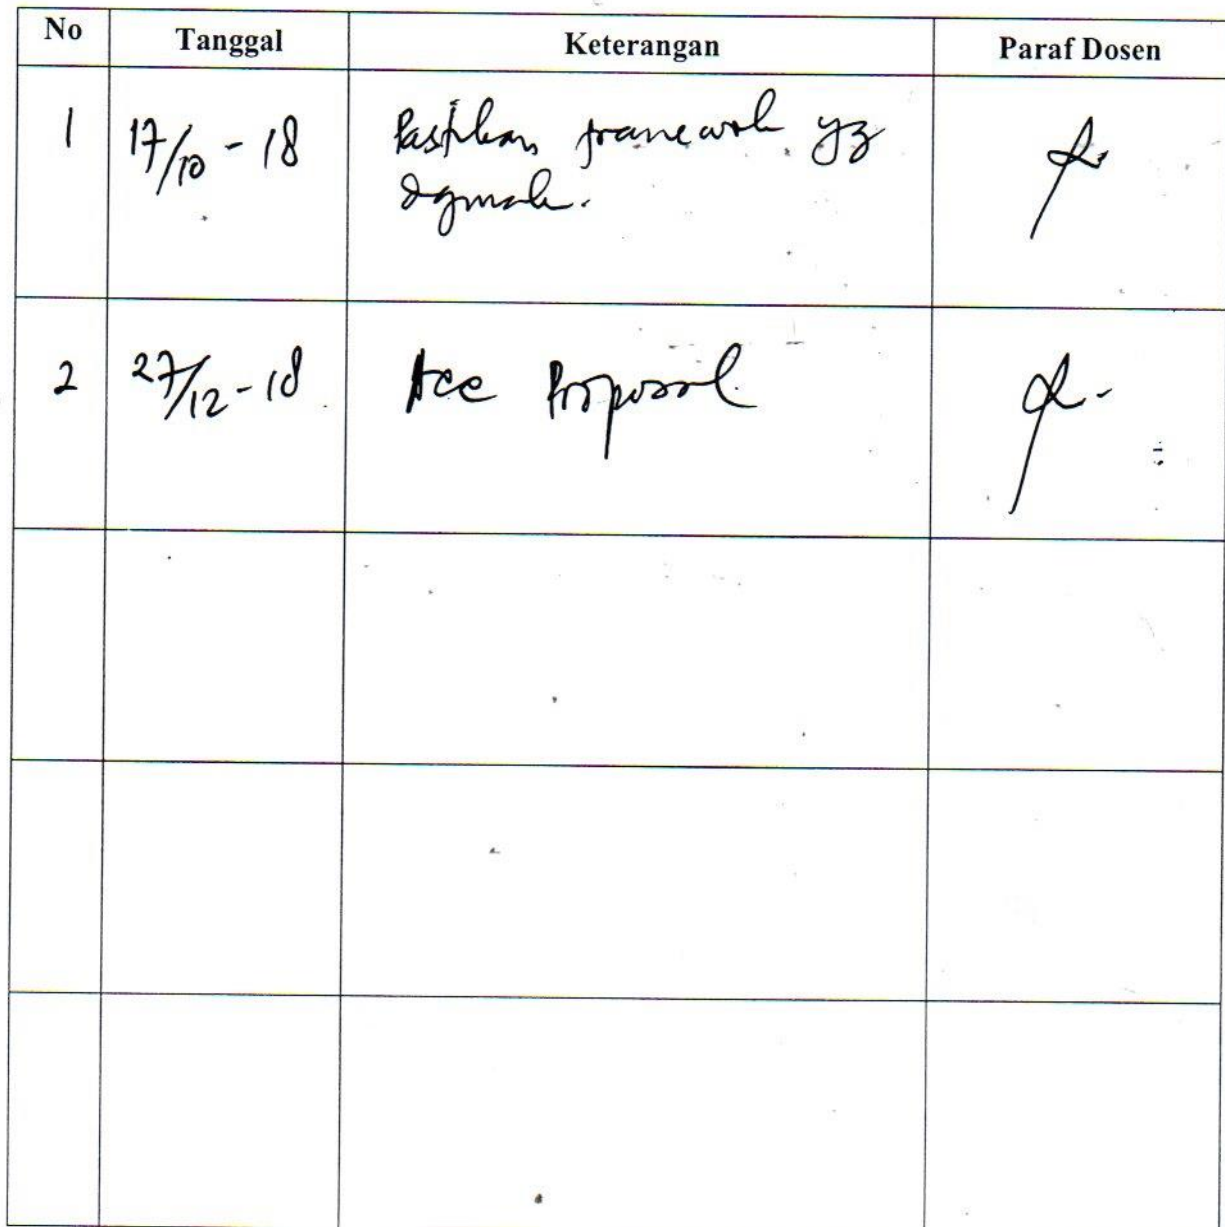 No Tanggal Keterangan Paraf Dosen
1 17/10 - 18 Pastikan framework yg
digunakan.
2 27/12 - 18 Acc Proposal